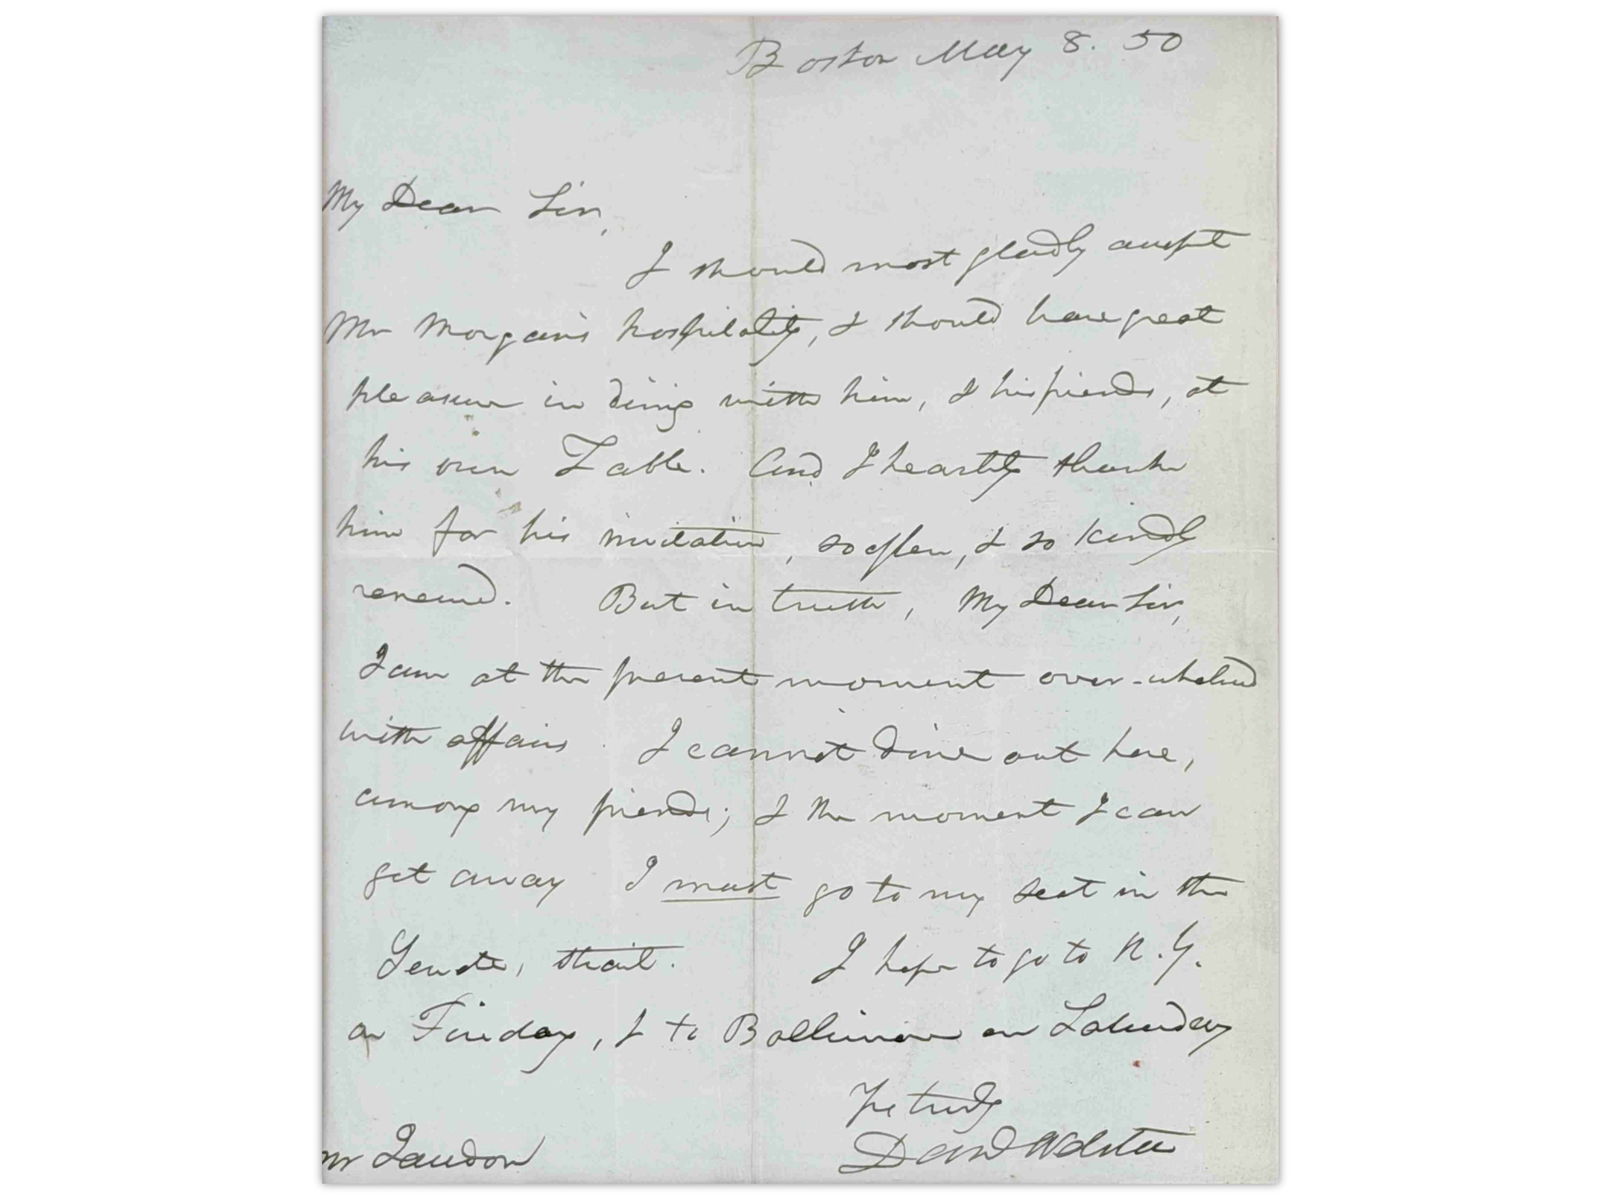 Boston May 8. 50
My Dear Sir,
I should most gladly accept
Mr Morgan's hospitality, & should have great
pleasure in dining with him, & his friends, at
his own Table. And I heartily thank
him for his invitation, so often, & so kindly
renewed. But in truth, My Dear Sir,
I am at the present moment over-whelmed
with affairs. I cannot dine out here,
among my friends; & the moment I can
get away I must go to my seat in the
Senate, strait. I hope to go to N.Y.
on Friday, & to Baltimore on Saturday
Yrs truly
Danl Webster
Mr